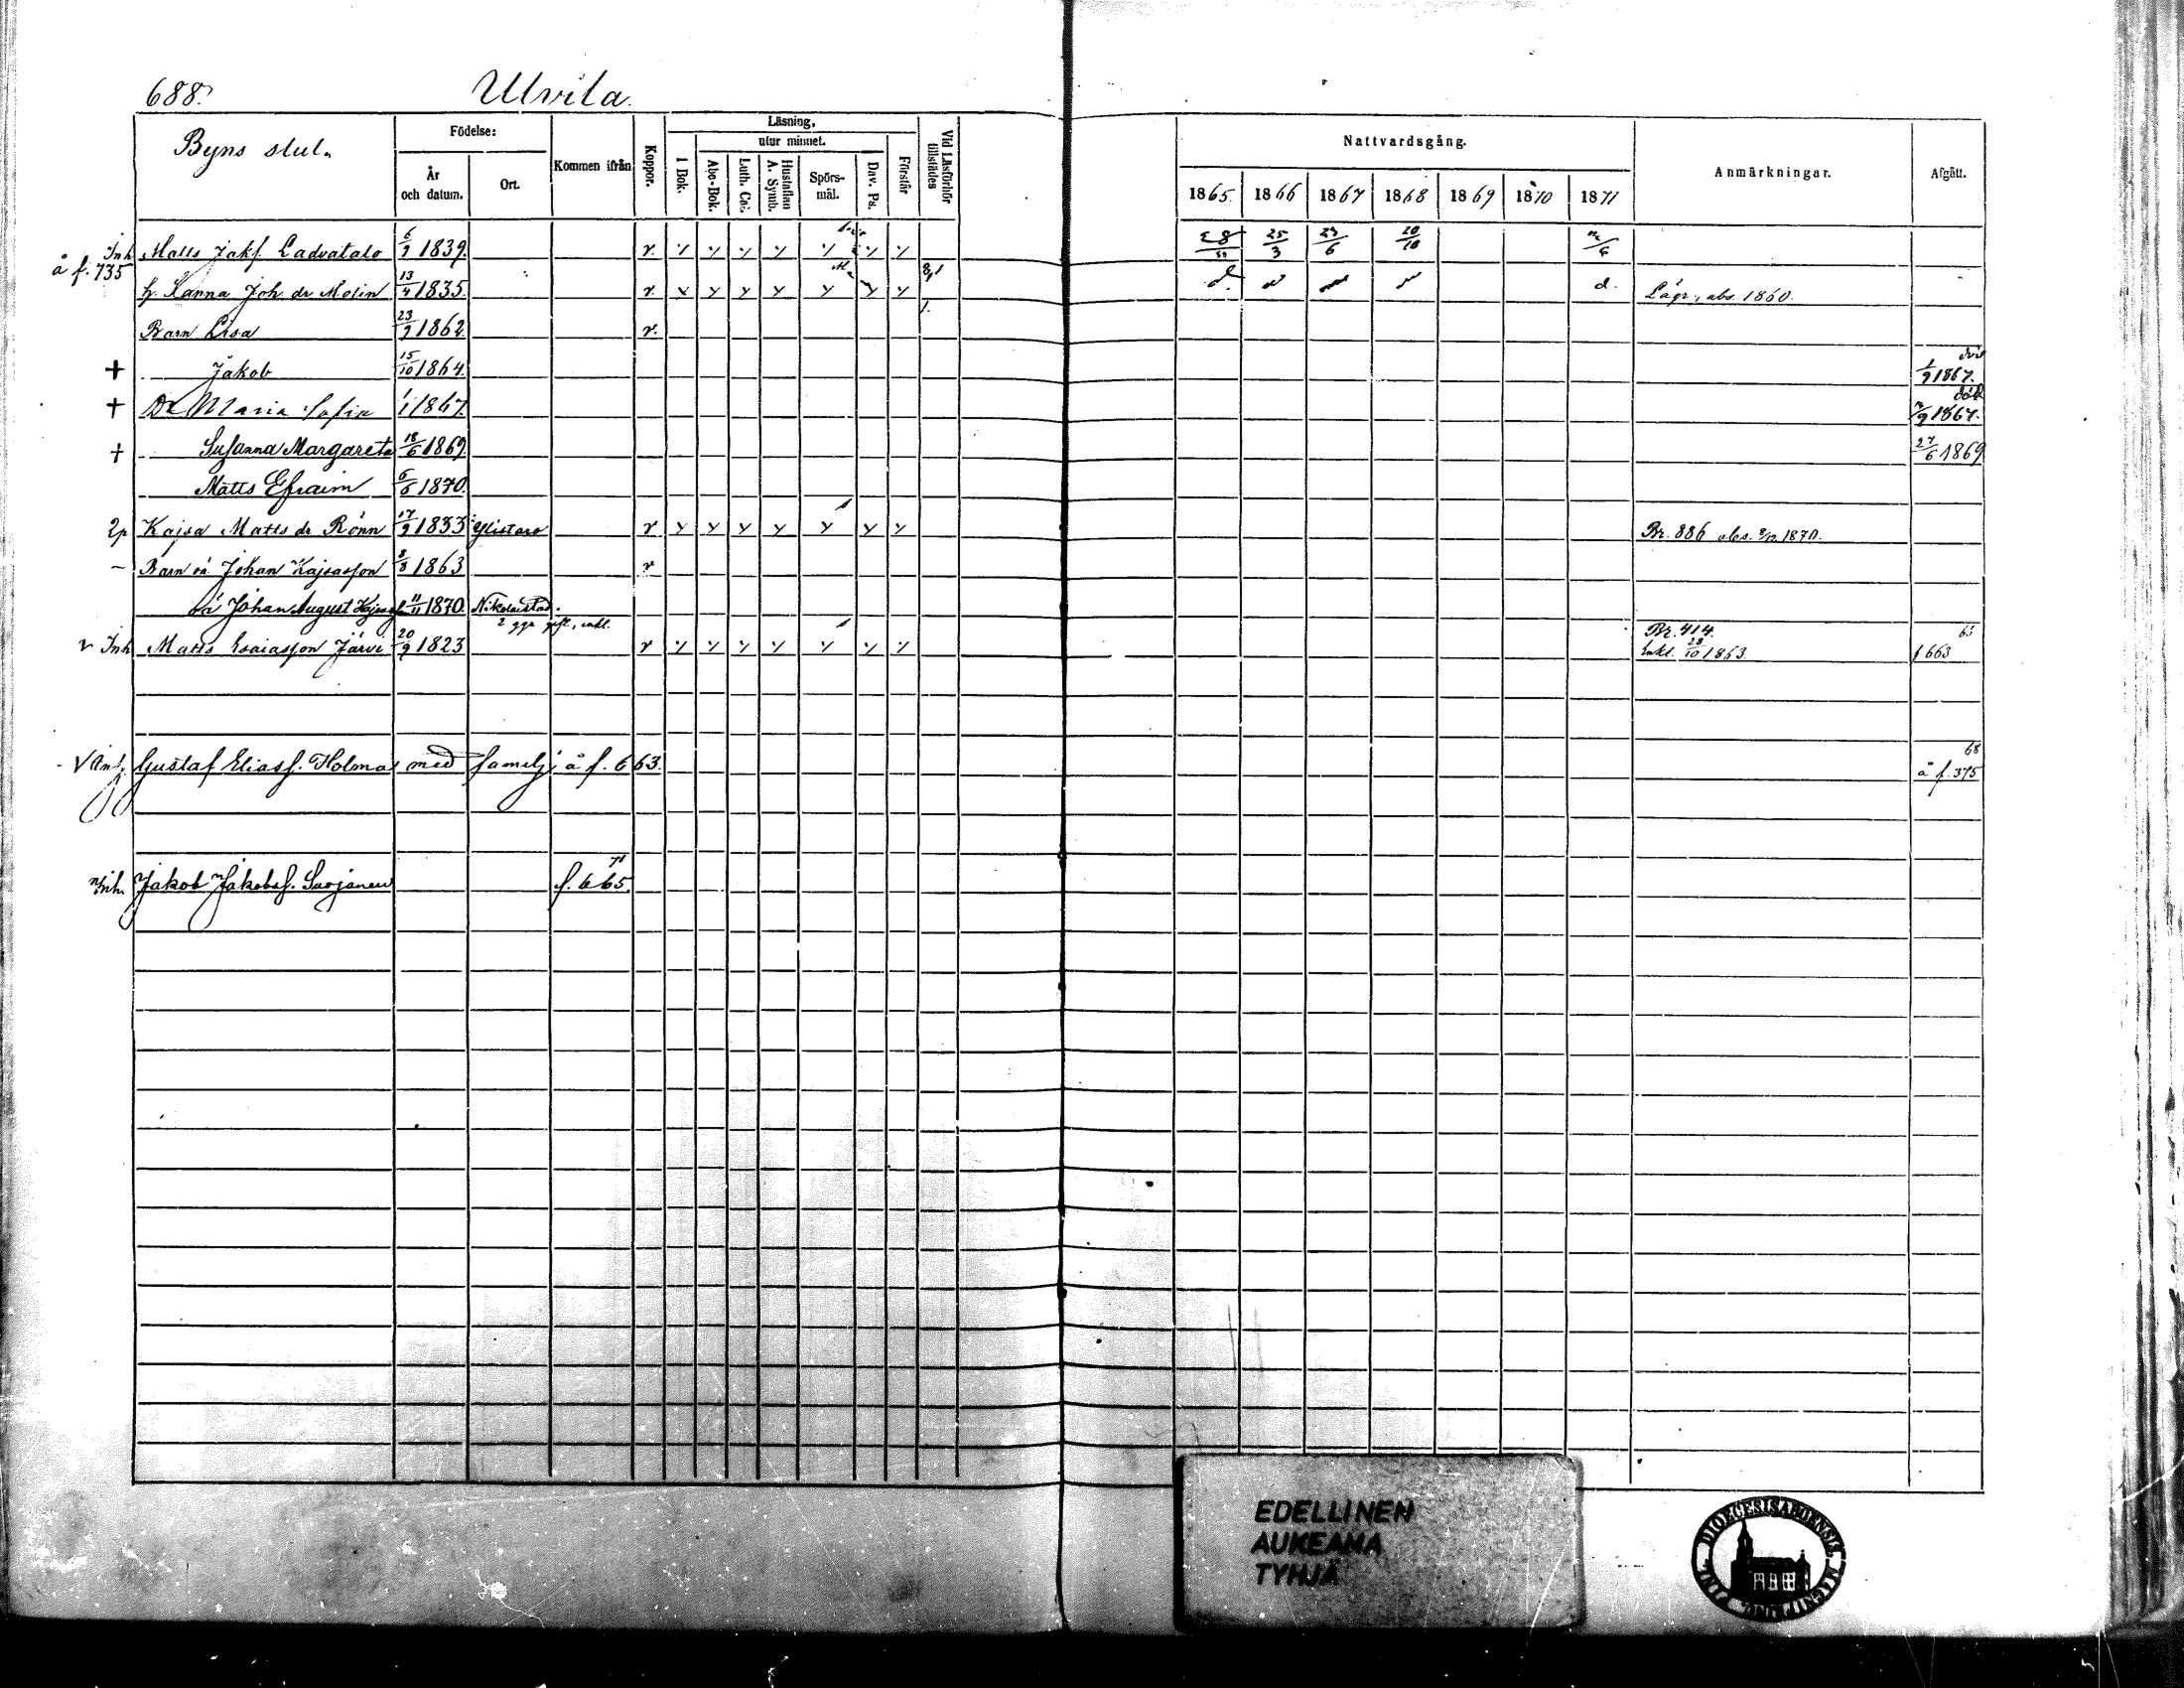 688.
Ulvila.
Byns slut.
Födelse:
År och datum.
Ort.
Kommen ifrån
Koppor.
Läsning,
I Bok.
utur minnet.
Abc-Bok.
Luth. Cat.
Hustaflan A. Symb.
Spörsmål.
Dav. Ps.
Förstår
Vid Läsförhör tillstädes
Nattvardsgång.
1865. 1866 1867 1868 1869 1870 1871
Anmärkningar.
Afgått.
Inh Matts Jakf. Ladvatalo 6/9 1839. 25/3 23/6 20/10
å f. 735
h. Sanna Joh. dr Molin 13/4 1835. d. Lägr., abs. 1860.
Barn Lisa 23/9 1862
+ Jakob 15/10 1864. 1/9 1867.
+ Dr Maria Sofia 1/1 1867. död 1867.
+ Susanna Margareta 18/6 1869. 27/6 1869
Matts Efraim 6/6 1870.
2p Kajsa Matts dr Rönn 17/9 1833 Ylistaro Br. 886 abs. 1870.
Barn oä Johan Kajsasson 8/8 1863
oä Johan August 11/11 1870. Nikolaistad.
2 ggr gift, enkl.
v Inh Matts Esaiasson Järvi 20/9 1823 Br. 414. Enkl. 28/10 1863. f 663
Gustaf Eliasf. Holma med familj å f. 663. 68 å f. 375
Inh. Jakob Jakobsf. Sarjanen 71 f. 665.
EDELLINEN
AUKEAMA
TYHJÄ